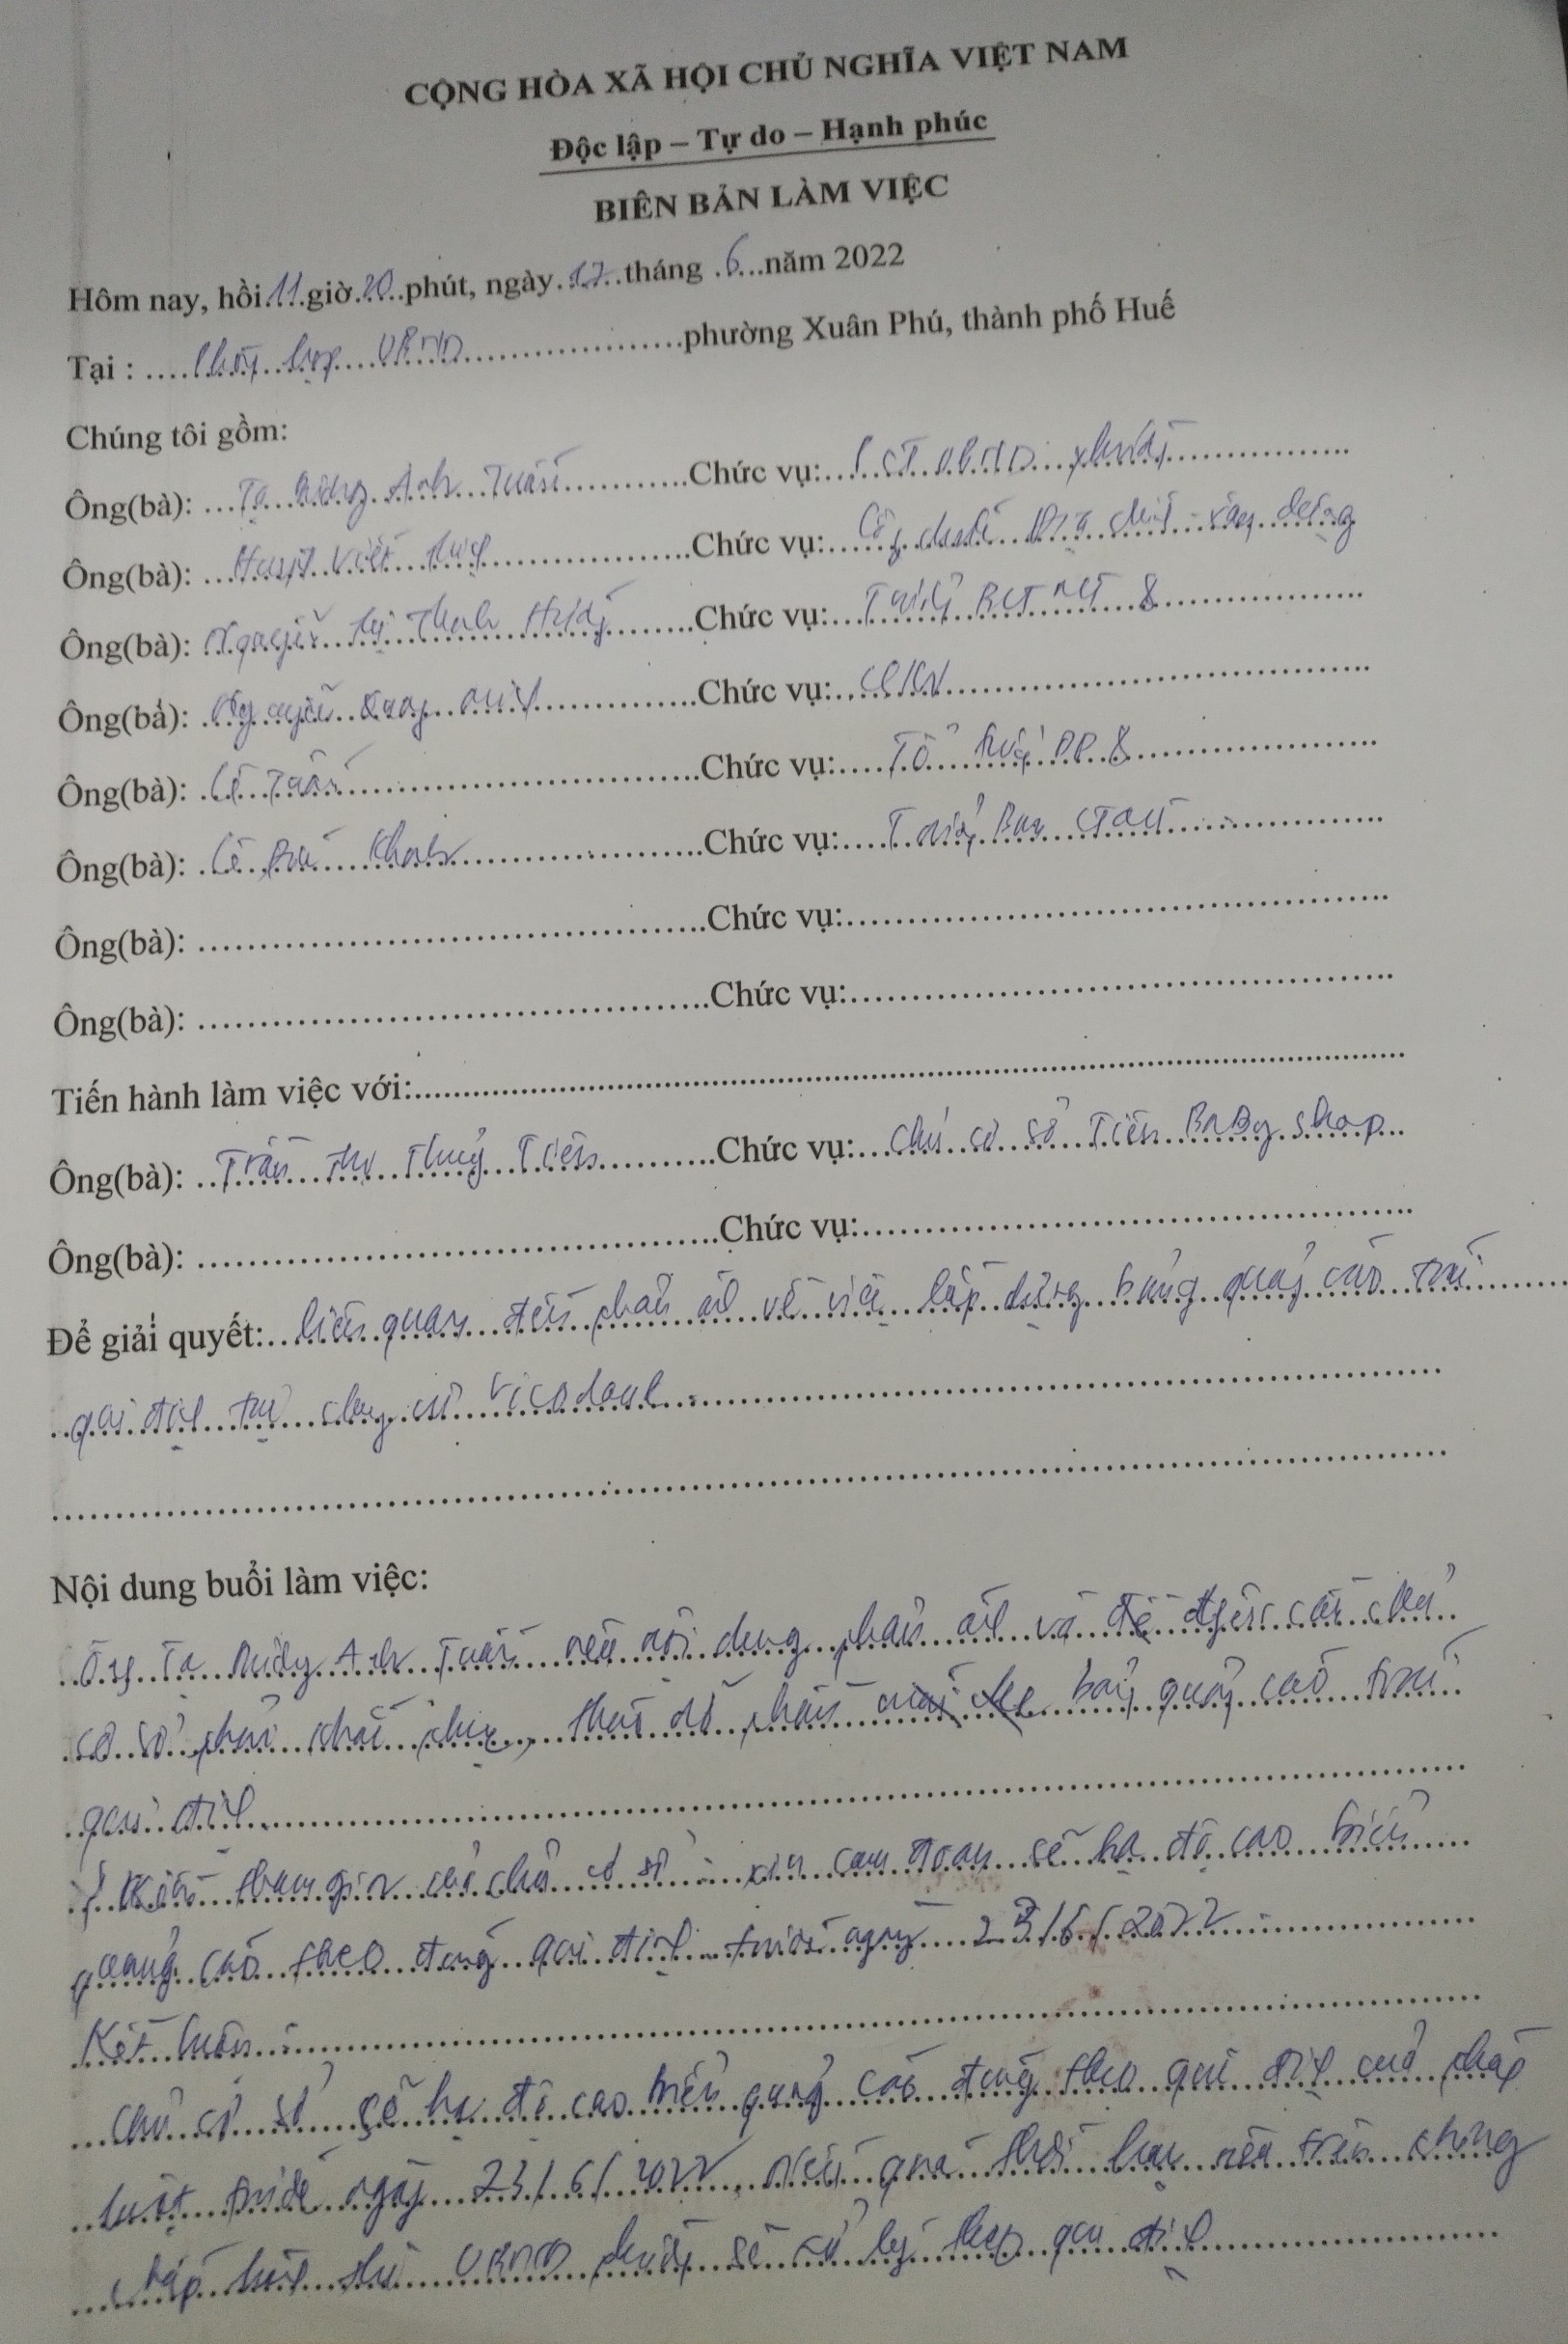 CỘNG HÒA XÃ HỘI CHỦ NGHĨA VIỆT NAM
Độc lập – Tự do – Hạnh phúc
BIÊN BẢN LÀM VIỆC
Hôm nay, hồi 11 giờ 20 phút, ngày 17 tháng 6 năm 2022
Tại : Phòng họp UBND phường Xuân Phú, thành phố Huế
Chúng tôi gồm:
Ông(bà): Tạ Anh Tuấn Chức vụ: PCT UBND phường
Ông(bà): Huỳnh Viết Chức vụ: Công chức Địa chính - xây dựng
Ông(bà): Nguyễn Thị Thanh Hương Chức vụ: Trưởng BCTMT 8
Ông(bà): Nguyễn Quang Minh Chức vụ: CSKV
Ông(bà): Lê Tuấn Chức vụ: Tổ trưởng DP 8
Ông(bà): Lê Khánh Chức vụ: Trưởng Ban
Ông(bà): Chức vụ:
Ông(bà): Chức vụ:
Tiến hành làm việc với:
Ông(bà): Trần Thị Thủy Tiên Chức vụ: Chủ cơ sở Tiên BaBy shop
Ông(bà): Chức vụ:
Để giải quyết: liên quan đến phản ánh về việc lắp dựng bảng quảng cáo trái
qui định tại chung cư Vicoland
Nội dung buổi làm việc:
Ông Tạ Anh Tuấn nêu nội dung phản ánh và đề cầu chủ
cơ sở phải khắc phục, tháo dỡ phần bảng quảng cáo trái
qui định
Ý kiến tham gia của chủ cơ sở : xin cam đoan sẽ hạ độ cao biển
quảng cáo theo đúng qui định trước ngày 23/6/2022
Kết luận :
Chủ cơ sở sẽ hạ độ cao biển quảng cáo đúng theo qui định của pháp
luật trước ngày 23/6/2022, Nếu quá thời hạn nêu trên không
chấp hành thì UBND phường sẽ xử lý theo qui định